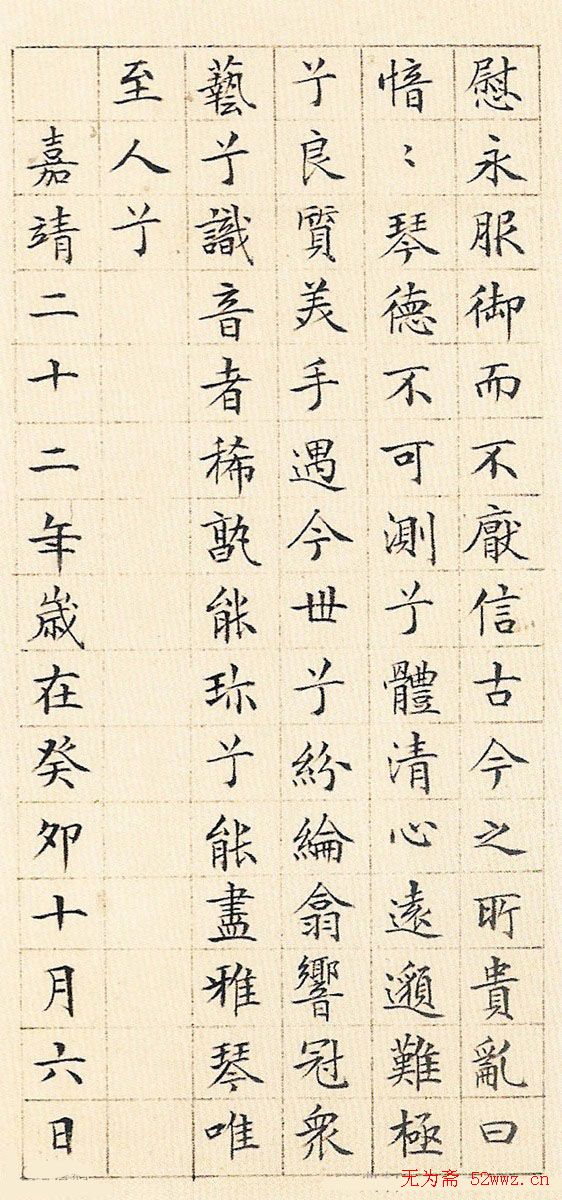 慰永服御而不厭信古今之所貴亂曰
愔〻琴德不可測兮體清心遠邈難極
兮良質美手遇今世兮紛綸翕響冠衆
藝兮識音者稀孰能珍兮能盡雅琴唯
至人兮
嘉靖二十二年歲在癸卯十月六日
无为斋 52wwz.cn